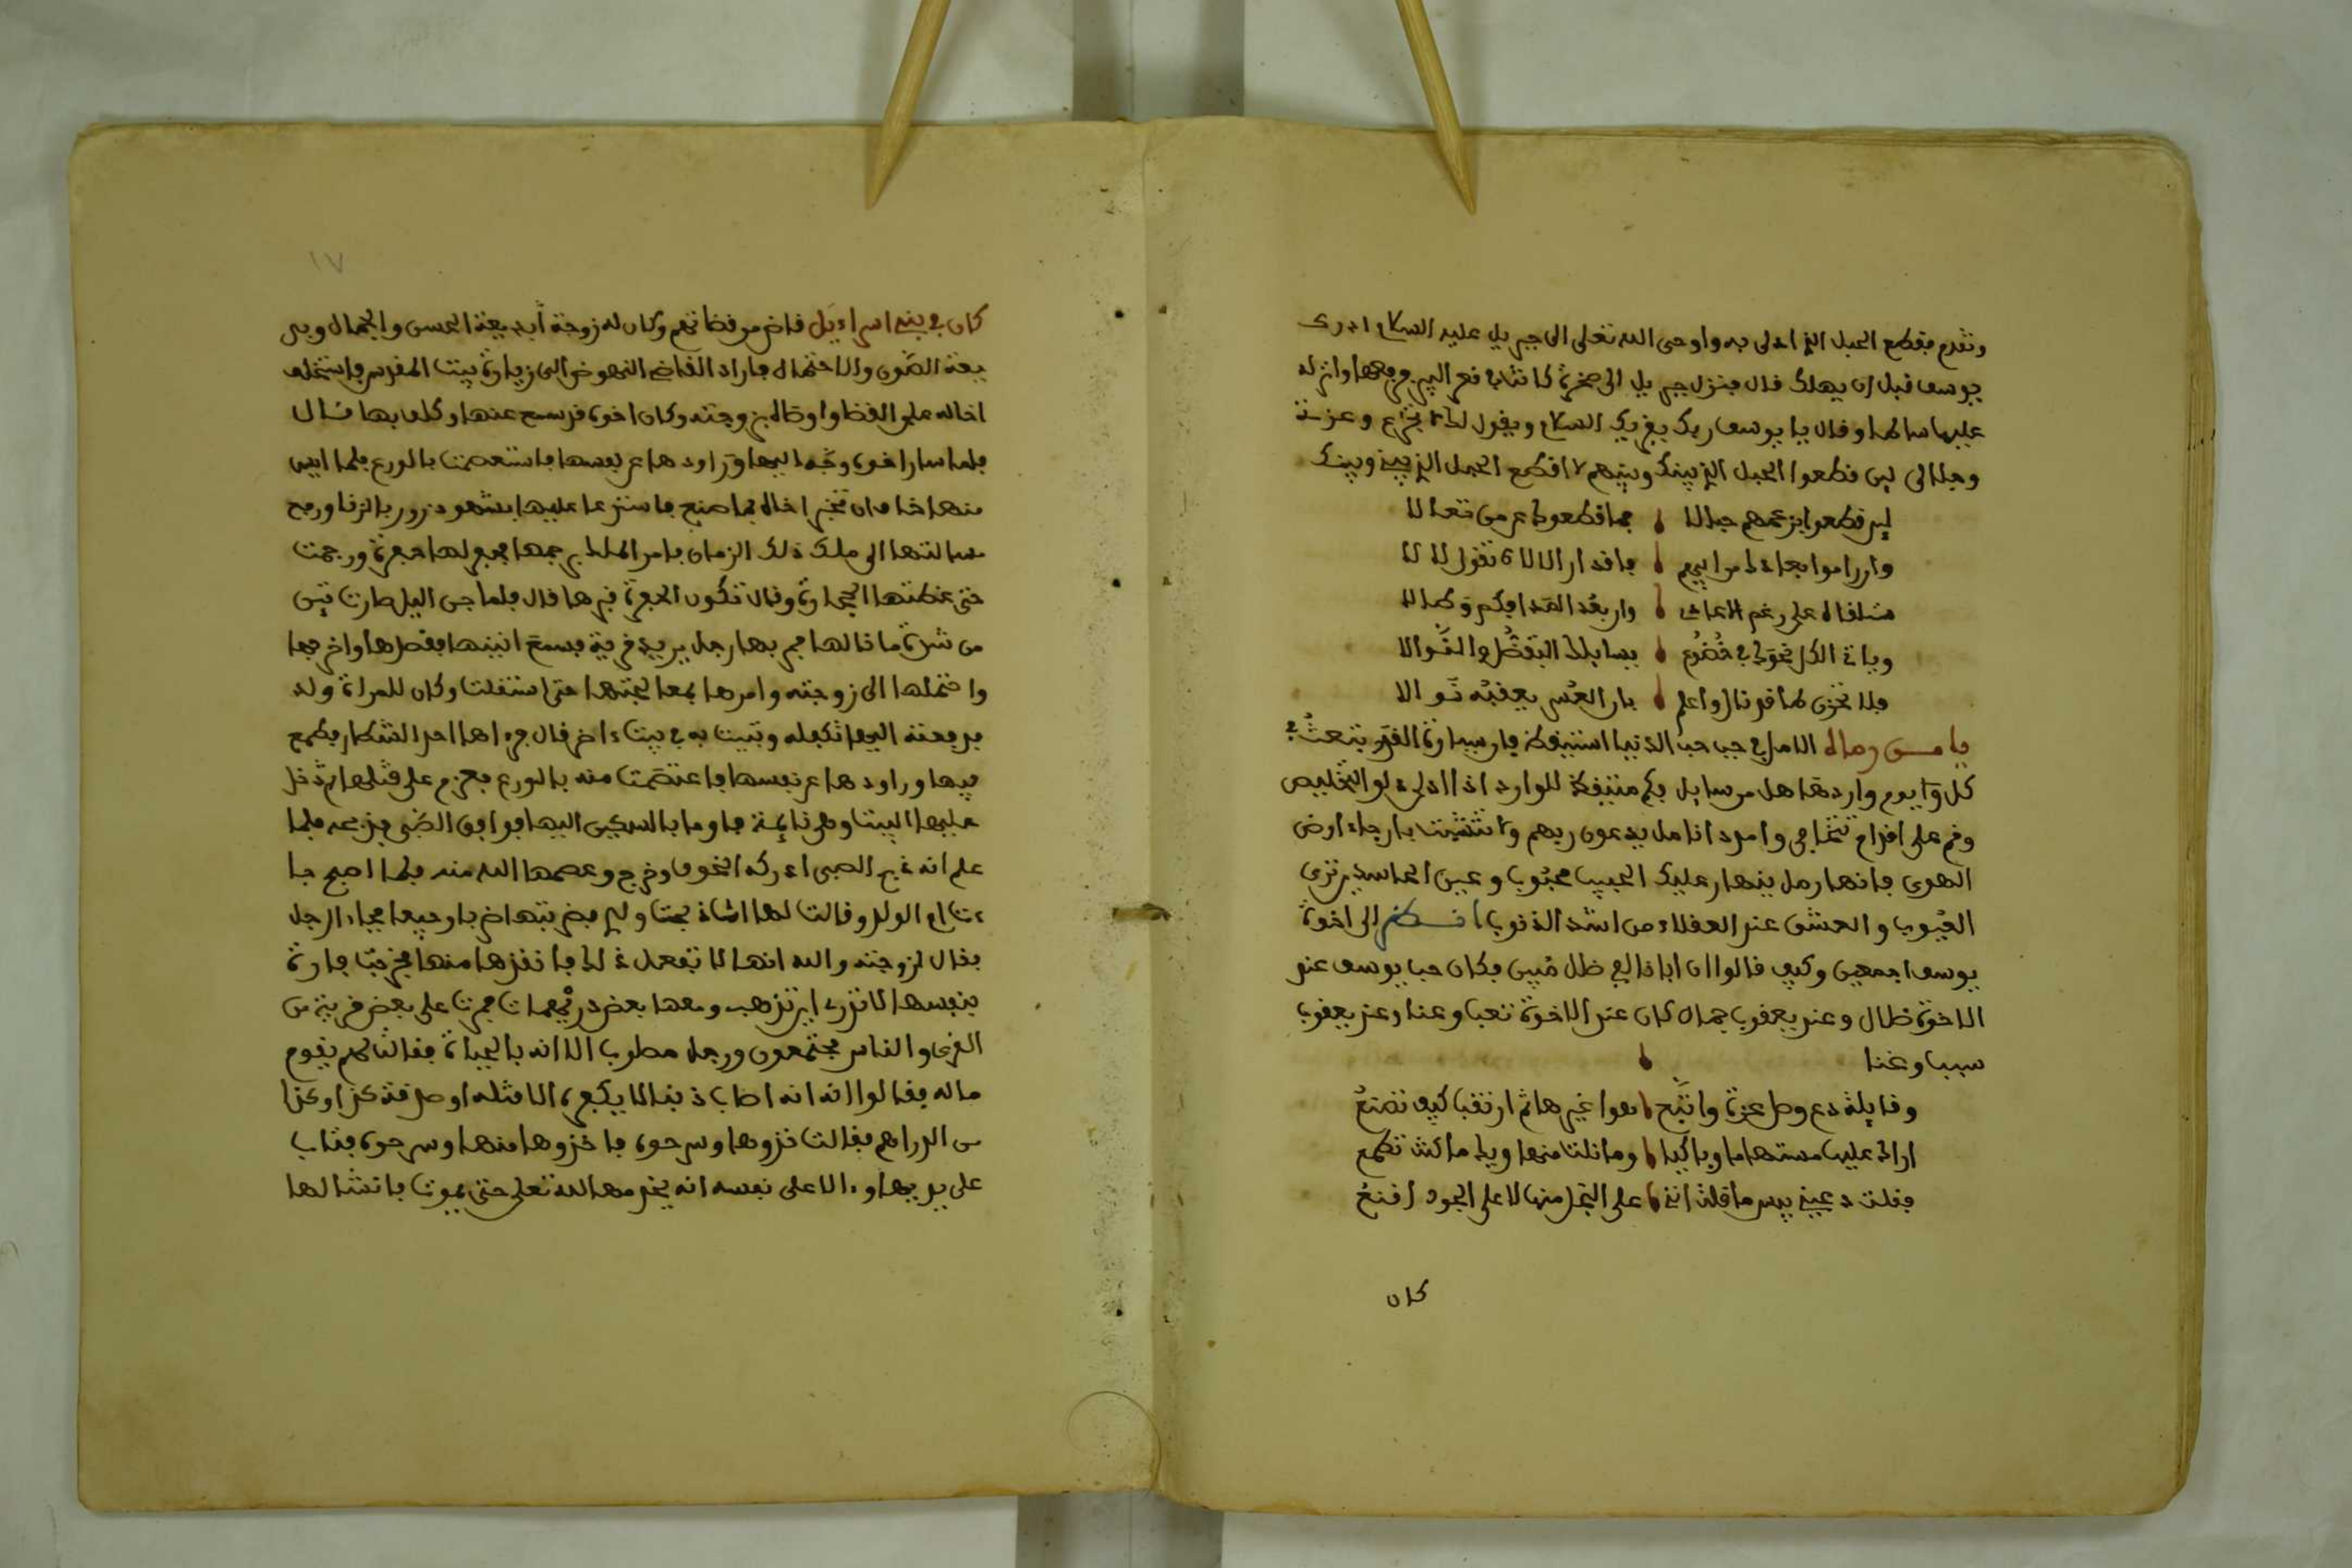 وتقدم فقطع الحبل الذي ادلى به واوحى الله تعلى الى جبريل عليه السلام ادرك
يوسف قبل ان يهلك قال فنزل جبريل الى صخرة كانت في قعر البير فرفعها وانزله
عليها سالما وقال يا يوسف ربك يقريك السلام ويقول لك لا تجزع وعزتي
وجلالي لين قطعوا الحبل الذي بينك وبينهم لا اقطع الحبل الذي بيني وبينك
لين قطعوا بزعمهم حبالا فما قطعوك عن من تعالا
وان راموا بعادك من ابيهم فاقدار الالاه تقول لا لا
ستلقاه على رغم الاعادي وان بعد المدا فيكم وطالا
وياتي الكل نحوك في خضوع يسايلك التفضل والنوالا
فلا تحزن لما قد نال واعلم بان العسر يعقبه نوالا
يا من رماه الامل في جب حب الدنيا استيقظ فان سيارة القدر تبعث في
كل يوم واردها هل من سايل فكم متيقظ للوارد اذا ادلى دلو التخليص
وقم على اقدام تتجافى وامدد انامل يدعون ربهم وتشبث بارجاء ارض
الهوى فانها رمل ينهار عليك الحبيب محبوب وعين الحاسد ترى
العيوب والعشق عند العقلاء من اشد الذنوب انظر الى اخوة
يوسف اجمعين وكيف قالوا ان ابانا لفي ضلل مبين فكان حب يوسف عند
الاخوة ضلال وعند يعقوب جمال كان عند الاخوة تعبا وعنا وعند يعقوب
سببا وغنا
وقايلة دع وصل عزة واتبع هوا غيرها ثم ارتقب كيف تصنع
اراك عليها مستهاما وباكيا وما نلت منها ويك ما كنت تطمع
فقلت دعيني بيس ما قلت انني على البخل منها لا على الجود اقنع
كان
١٧
كان في بني اسراءيل قاض من قضاتهم وكان له زوجة بديعة الحسن والجمال
الصون والاحتمال فاراد القاضي النهوض الى زيارة بيت المقدس فاستخلف
اخاه على القضا واوصاه بزوجته وكان اخوه قد سمع عنها وكلف بها قال
فلما سار اخوه وجه اليها وراودها عن نفسها فاستعصمت بالورع فلما ايس
منها خاف ان تخبر اخاه بما صنع فاستدعا عليها بشهود زور بالزنا ورفع
مسالتها الى ملك ذلك الزمان فامر الملك برجمها فحفر لها حفرة ورجمت
حتى غطتها الحجارة وقال تكون الحفرة قبرها قال فلما جن اليل صارت تين
من شدة ما نالها فمر بها رجل يريد قرية فسمع انينها فقصدها واخرجها
واحتملها الى زوجته وامرها بمعالجتها حتى استقلت وكان للمراة ولد
فدفعته اليها تكفله وتبيت به في بيت اخر قال فرءاها احد الشطار فطمع
فيها وراودها عن نفسها فاعتصمت منه بالورع فعزم على قتلها ثم دخل
عليها البيت وهي نايمة فاوما بالسكين اليها فوافق الصبي فذبحه فلما
علم انه ذبح الصبي ادركه الخوف وخرج وعصمها الله منه فلما اصبح جا
ءت ام الولد وقالت لها انت ذبحت ولدي فضربتها ضربا وجيعا فجاء الرجل
فقال لزوجته والله انها لا تفعل ذلك فانقذها منها فخرجت فارة
بنفسها لا تدري اين تذهب ومعها بعض دريهمات فمرت على بعض قرية من
القرى والناس مجتمعون ورجل مصلوب الا انه بالحياة فقالت لهم يقوم
ماله فقالوا انه اصاب ذنبا لا يكفره الا قتله او صدقة كذا وكذا
من الدراهم فقالت خذوها وسرحوه فاخذوها منها وسرحوه فتاب
على يديها وءالا على نفسه انه يخدمها لله تعلى حتى يموت فانشا لها